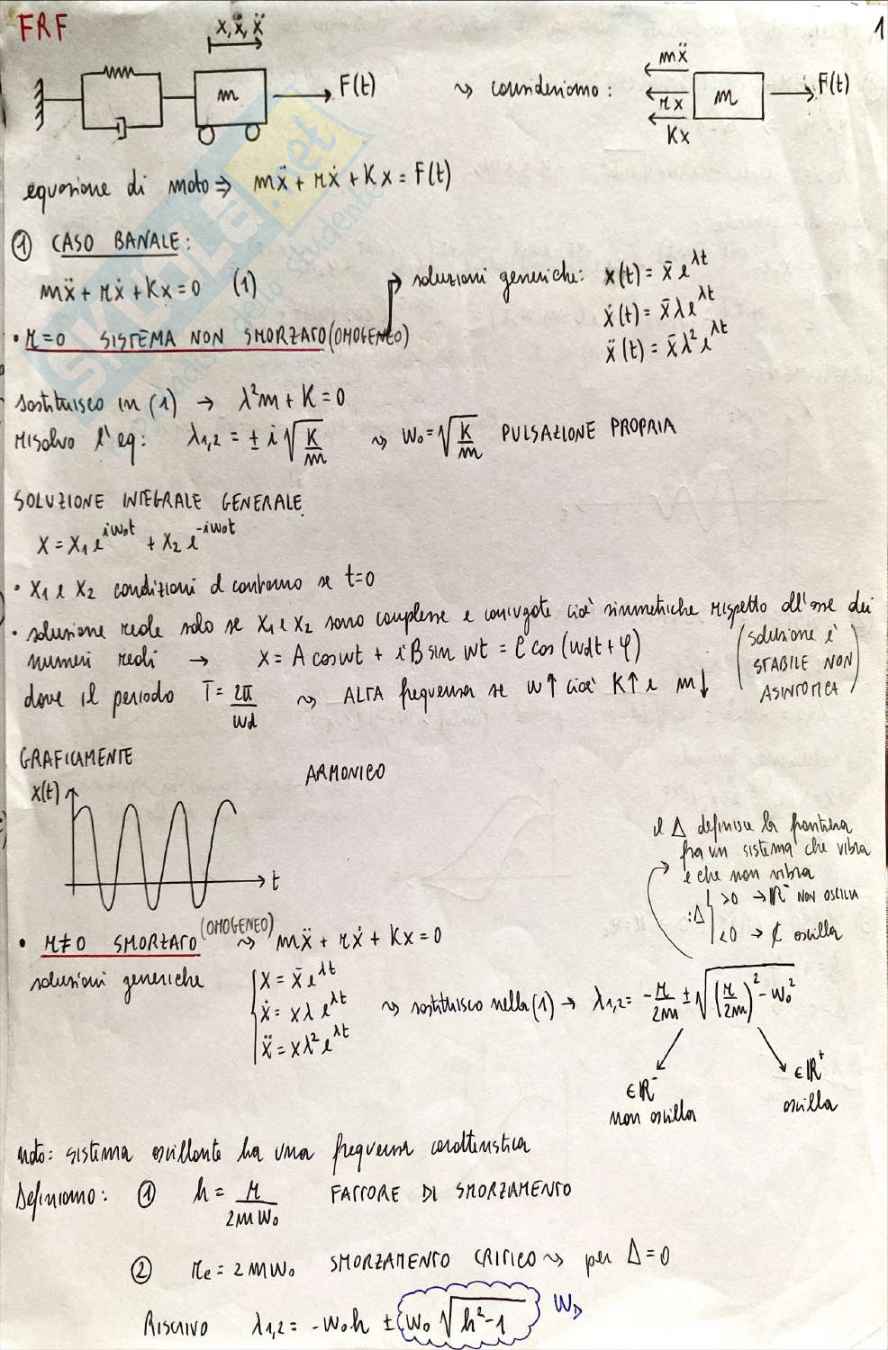 FRF
1
x, ẋ, ẍ
m
F(t)
⇝ consideriamo:
mẍ
rẋ
Kx
m
F(t)
equazione di moto ⇒ mẍ + rẋ + Kx = F(t)
① CASO BANALE:
mẍ + rẋ + Kx = 0 (1)
soluzioni generiche: x(t) = x̄ e^λt
ẋ(t) = x̄ λ e^λt
ẍ(t) = x̄ λ² e^λt
• r=0 SISTEMA NON SMORZATO (OMOGENEO)
sostituisco in (1) → λ²m + K = 0
risolvo l'eq: λ1,2 = ± i √(K/m) ⇝ ω0 = √(K/m) PULSAZIONE PROPRIA
SOLUZIONE INTEGRALE GENERALE
x = x1 e^iω0t + x2 e^-iω0t
• x1 e x2 condizioni al contorno se t=0
• soluzione reale solo se x1 e x2 sono complesse e coniugate cioè simmetriche rispetto all'asse dei
numeri reali → x = A cos ωt + i B sin ωt = C cos (ωdt + φ)
(soluzione è STABILE NON ASINTOTICA)
dove il periodo T = 2π/ωd ⇝ ALTA frequenza se ω↑ cioè K↑ e m↓
GRAFICAMENTE
ARMONICO
x(t)
t
il Δ definisce la frontiera
fra un sistema che vibra
e che non vibra
:Δ { >0 → ℝ⁻ NON OSCILLA
<0 → ₵ oscilla
• r≠0 SMORZATO (OMOGENEO) ⇝ mẍ + rẋ + Kx = 0
soluzioni generiche { x = x̄ e^λt
ẋ = xλ e^λt
ẍ = xλ² e^λt
⇝ sostituisco nella (1) → λ1,2 = -r/2m ± √((r/2m)² - ω0²)
∈ℝ⁻
non oscilla
∈ℝ⁺
oscilla
nota: sistema oscillante ha una frequenza caratteristica
Definiamo: ① h = r/2mω0 FATTORE DI SMORZAMENTO
② rc = 2mω0 SMORZAMENTO CRITICO ⇝ per Δ=0
Riscrivo λ1,2 = -ω0h ± ω0 √(h²-1) ωD